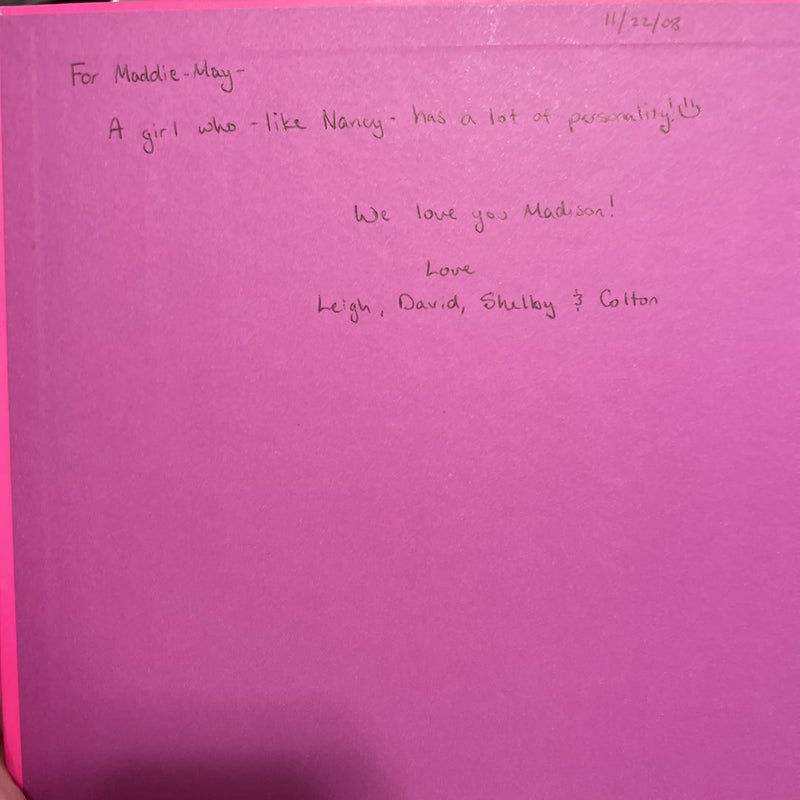 11/22/08
For Maddie-May-
A girl who -like Nancy- has a lot of personality!
We love you Madison!
Love
Leigh, David, Shelby & Colton